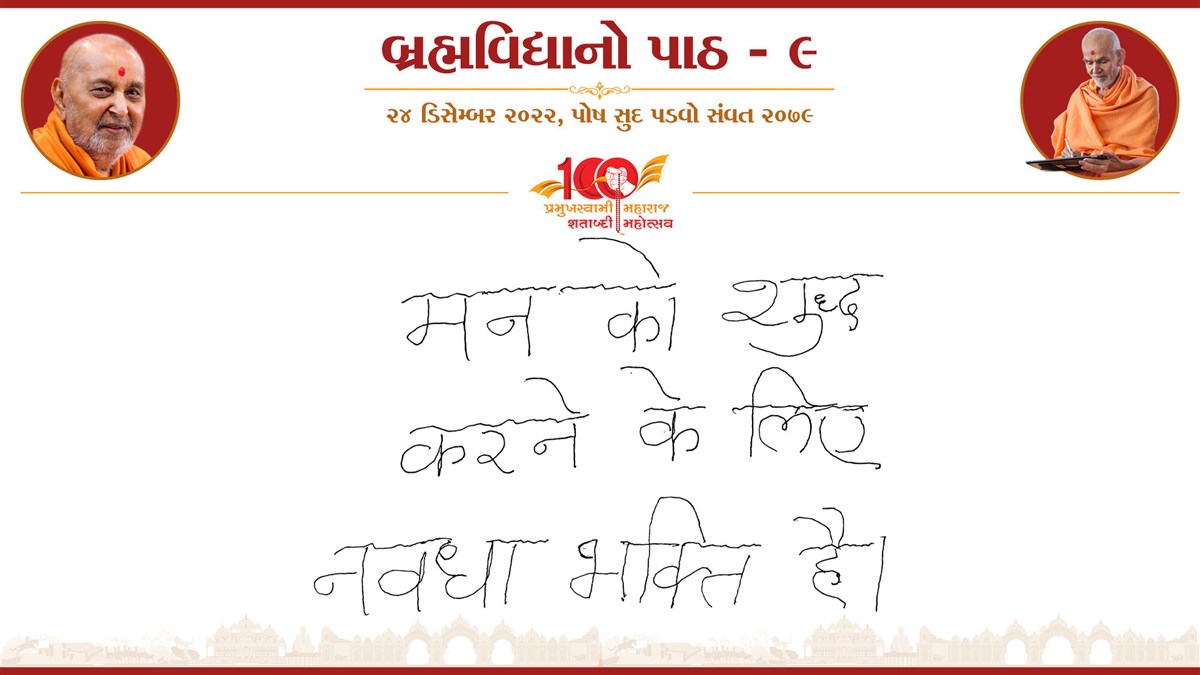 બ્રહ્મવિદ્યાનો પાઠ - ૯
૨૪ ડિસેમ્બર ૨૦૨૨, પોષ સુદ પડવો સંવત ૨૦૭૯
100
પ્રમુખસ્વામી મહારાજ
શતાબ્દી મહોત્સવ
मन को शुद्ध
करने के लिए
नवधा भक्ति है।